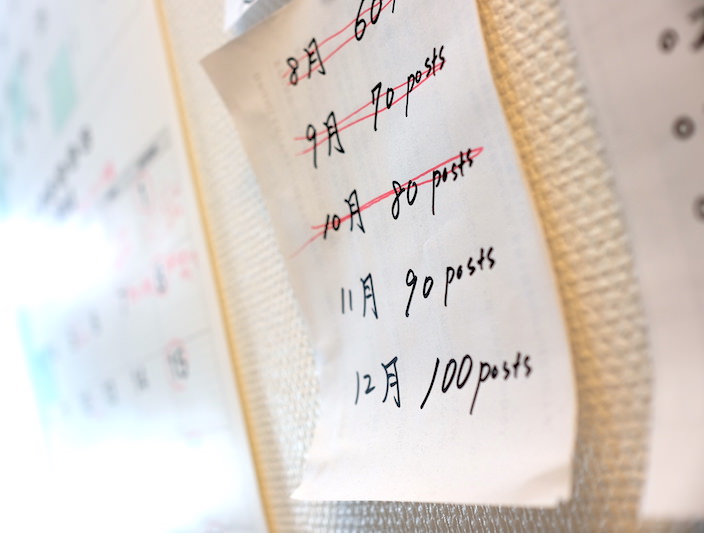 8月 60
9月 70 posts
10月 80 posts
11月 90 posts
12月 100 posts
15